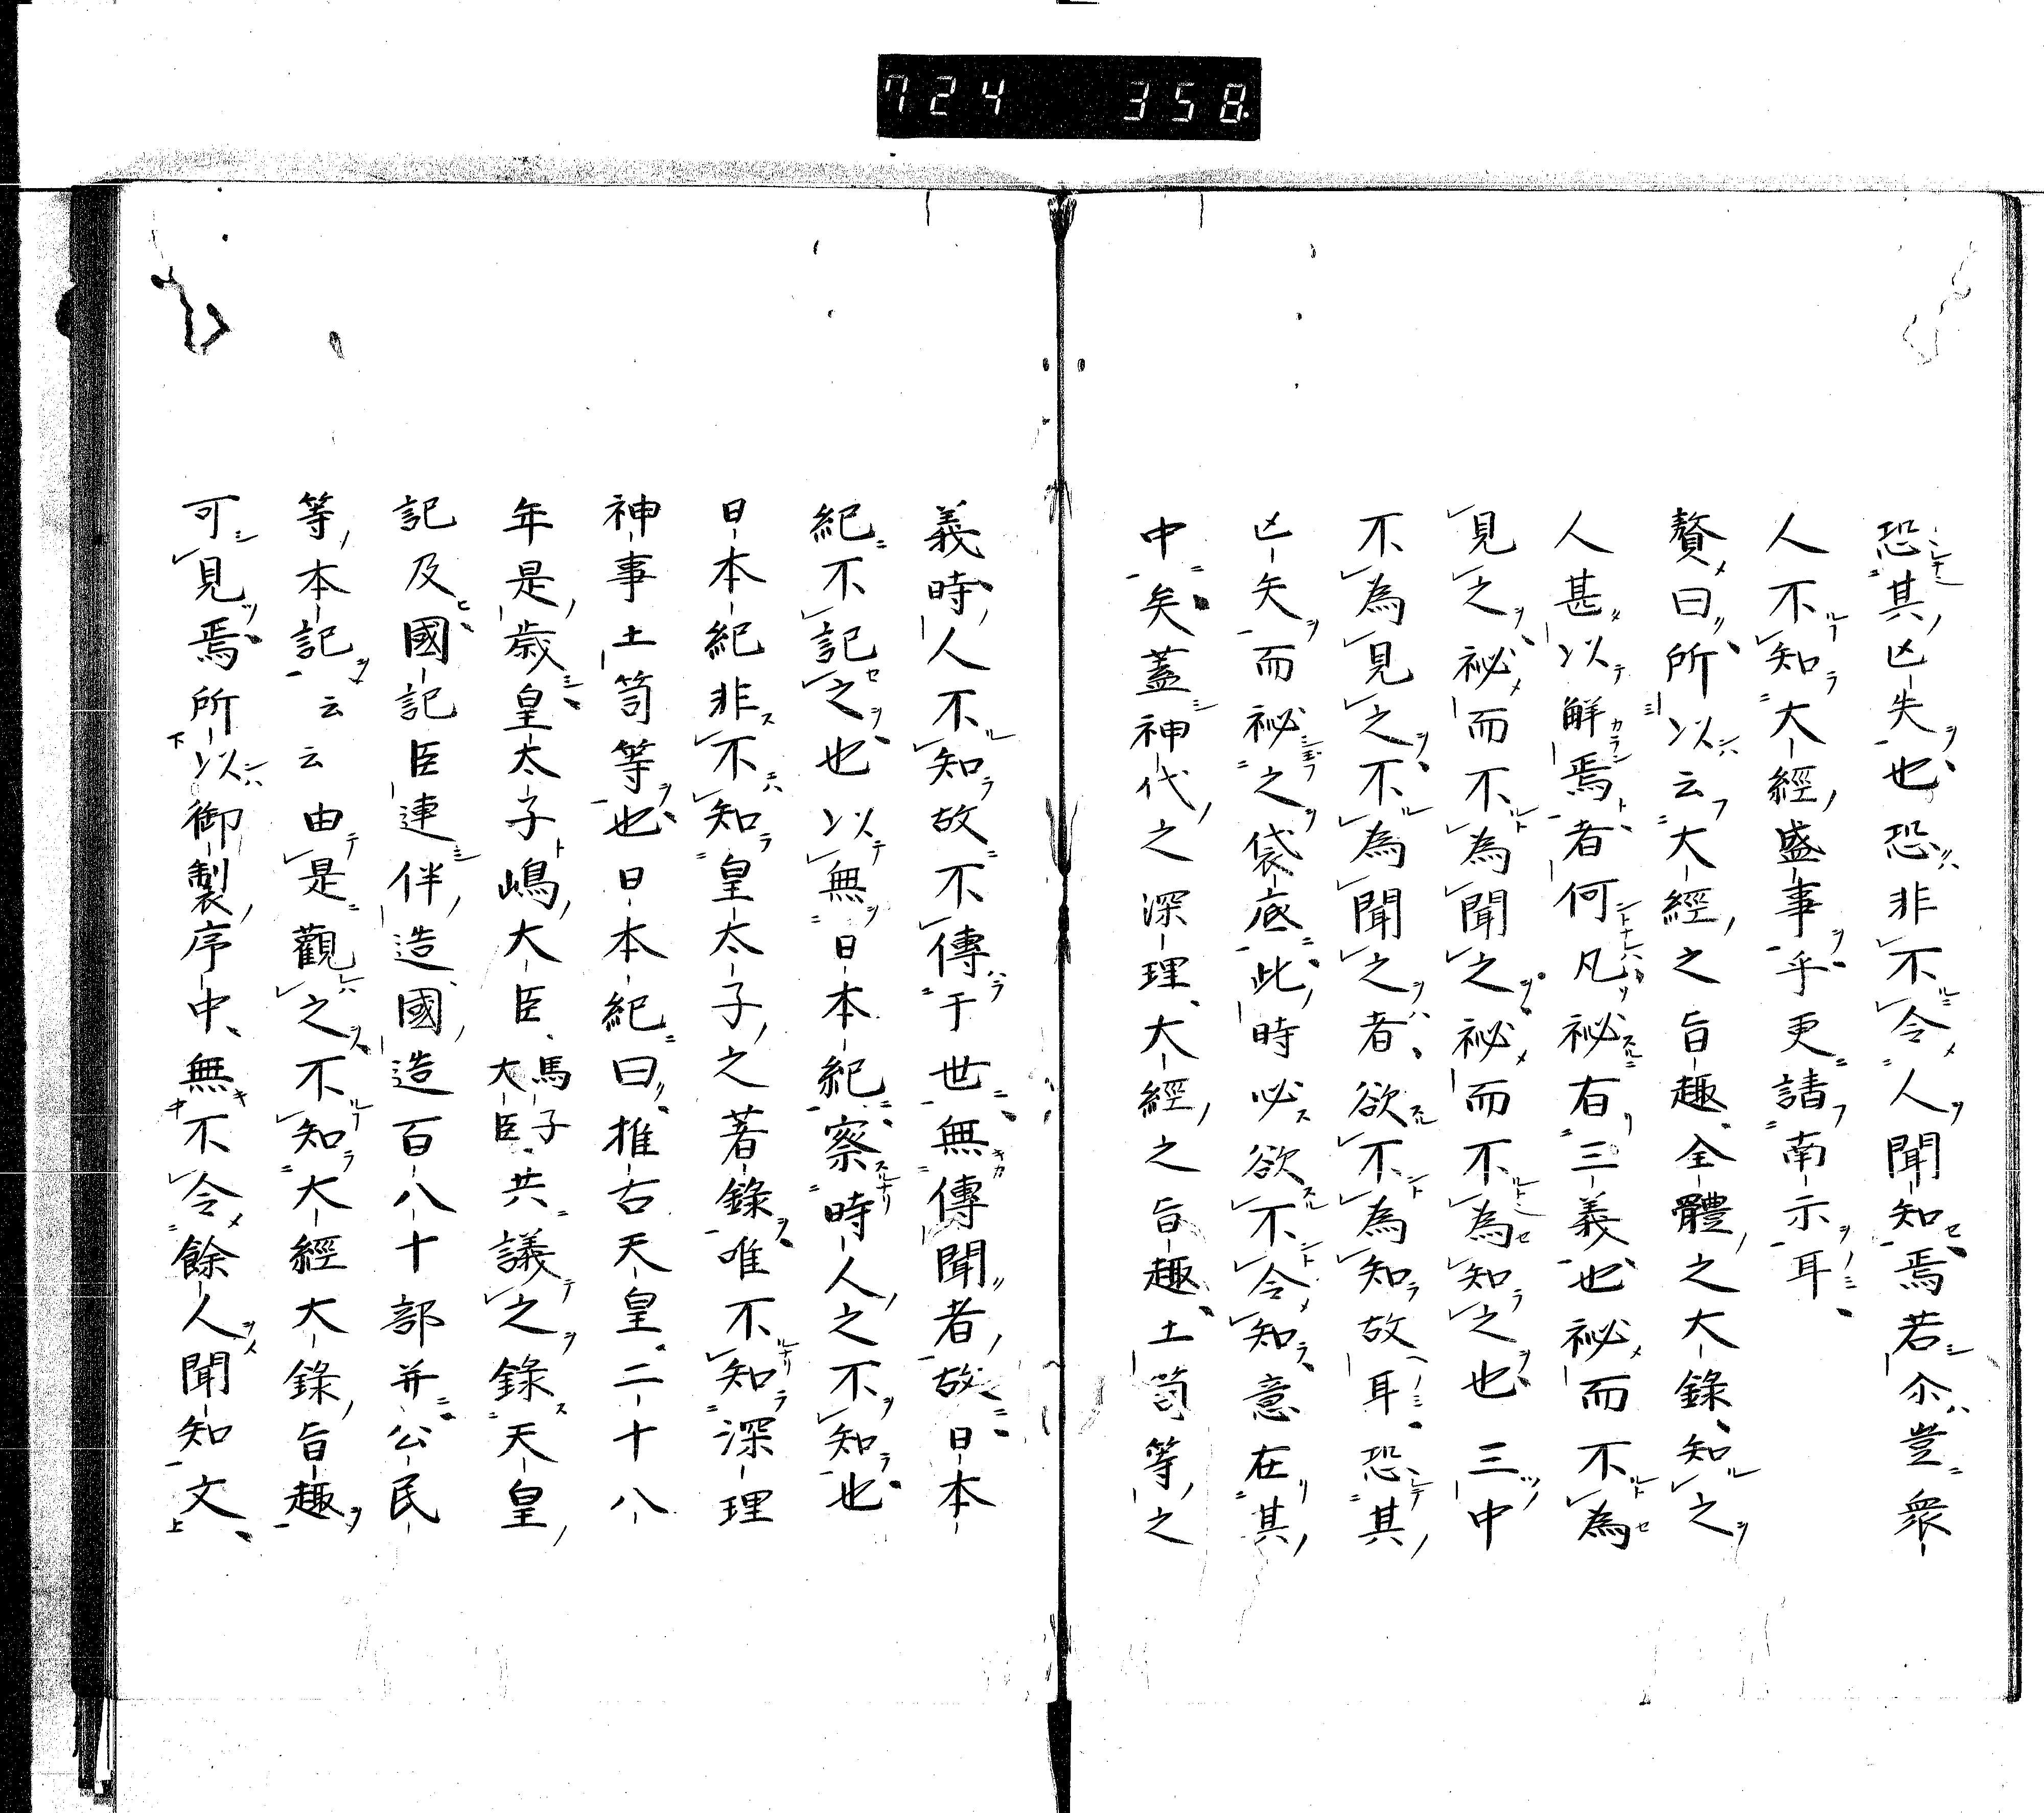 724 358
恐其亾失也恐非不令人聞知焉若尒豈衆
人不知大經盛事乎更請南示耳
贅曰所以云大經之旨趣全體之大錄知之
人甚以鮮焉者何凡祕有三義也祕而不為
見之祕而不為聞之祕而不為知之也三中
不為見之不為聞之者欲不為知故耳恐其
亾矢而祕之袋底此時必欲不令知意在其
中矣蓋神代之深理大經之旨趣土笥等之
義時人不知故不傳于世無傳聞者故日本
紀不記之也以無日本紀察時人之不知也
日本紀非不知皇太子之著錄唯不知深理
神事土笥等也日本紀曰推古天皇二十八
年是歲皇太子嶋大臣馬子大臣共議之錄天皇
記及國記臣連伴造國造百八十部并公民
等本記云云由是觀之不知大經大錄旨趣
可見焉所以御製序中無不令餘人聞知文